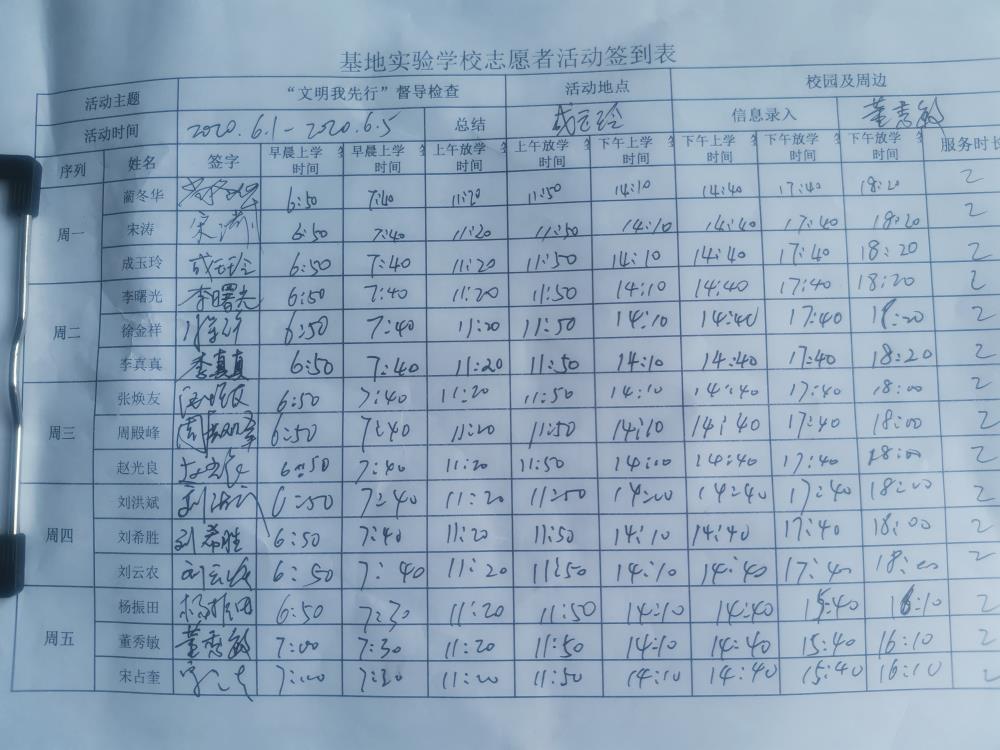 基地实验学校志愿者活动签到表
活动主题 “文明我先行”督导检查 活动地点 校园及周边
活动时间 2020.6.1-2020.6.5 总结 成玉玲 信息录入 董秀敏
序列 姓名 签字 早晨上学 早晨上学 上午放学 上午放学 下午上学 下午上学 下午放学 下午放学 服务时长
时间 时间 时间 时间 时间 时间 时间 时间
周一 蔺冬华 6:50 7:40 11:20 11:50 14:10 14:40 17:40 18:20 2
宋涛 宋涛 6:50 7:40 11:20 11:50 14:10 14:40 17:40 18:20 2
成玉玲 成玉玲 6:50 7:40 11:20 11:50 14:10 14:40 17:40 18:20 2
周二 李曙光 李曙光 6:50 7:40 11:20 11:50 14:10 14:40 17:40 18:20 2
徐金样 6:50 7:40 11:20 11:50 14:10 14:40 17:40 18:20 2
李真真 李真真 6:50 7:40 11:20 11:50 14:10 14:40 17:40 18:20 2
周三 张焕友 6:50 7:40 11:20 11:50 14:10 14:40 17:40 18:00 2
周殿峰 6:50 7:40 11:20 11:50 14:10 14:40 17:40 18:00 2
赵光良 6:50 7:40 11:20 11:50 14:00 14:40 17:40 18:00 2
周四 刘洪斌 刘洪斌 6:50 7:40 11:20 11:50 14:00 14:40 17:40 18:00 2
刘希胜 刘希胜 6:50 7:40 11:20 11:50 14:10 14:40 17:40 18:00 2
刘云农 刘云农 6:50 7:40 11:20 11:50 14:10 14:40 17:40 18:00 2
周五 杨振田 杨振田 6:50 7:30 11:20 11:50 14:10 14:40 15:40 16:10 2
董秀敏 董秀敏 7:00 7:30 11:20 11:50 14:10 14:40 15:40 16:10 2
宋占奎 7:00 7:30 11:20 11:50 14:10 14:40 15:40 16:10 2